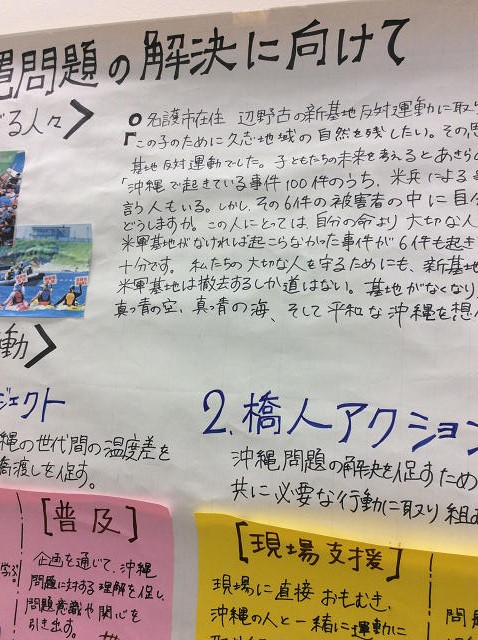 縄問題の解決に向けて
る人々>
•名護市在住 辺野古の新基地反対運動に取り
「この子のために久志地域の自然を残したい。その思
基地反対運動でした。子どもたちの未来を考えるとあきら
「沖縄で起きている事件100件のうち、米兵による
言う人もいる。しかし、その6件の被害者の中に自分
どうしますか。この人にとっては自分の命より大切な人
米軍基地がなければ起こらなかった事件が6件も起き
十分です。私たちの大切な人を守るためにも、新基地
米軍基地は撤去するしか道はない。基地がなくなり
真っ青の空、真っ青の海、そして平和な沖縄を想
動>
ジェクト
縄の世代間の温度差を
橋渡しを促す。
2.橋人アクション
沖縄問題の解決を促すため
共に必要な行動に取り組
[普及]
企画を通じて、沖縄
問題に対する理解を促し、
問題意識や関心を
引き出す。
[現場支援]
現場に直接おもむき、
沖縄の人と一緒に運動に
問